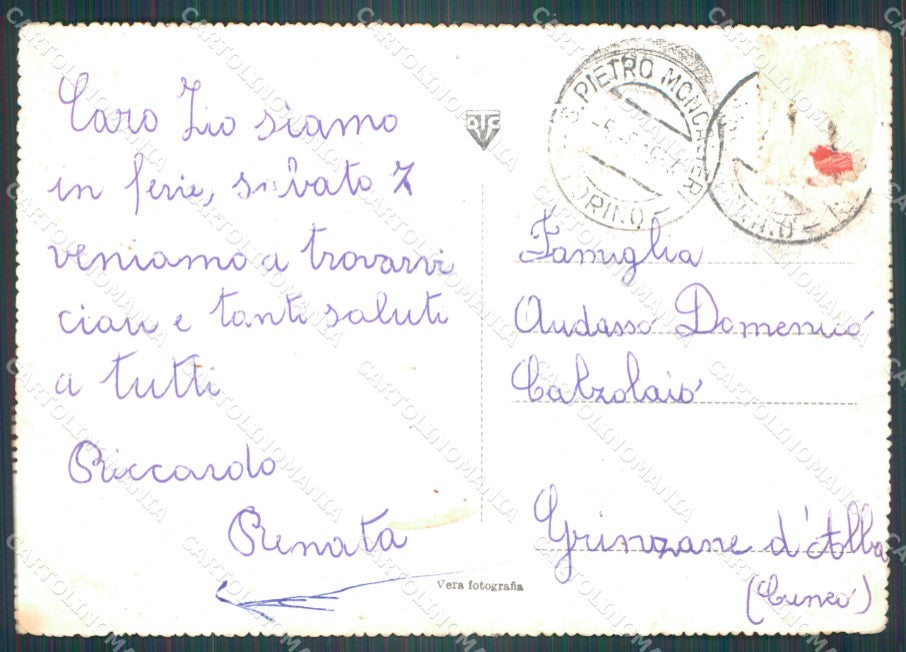 Caro Zio siamo
in ferie, sabato 7
veniamo a trovarvi
ciau e tanti saluti
a tutti
Riccardo
Renata
S. PIETRO MONCALIER
TORINO
Famiglia
Audasso Domenico
Calzolaio
Grinzane d'Alba
(Cuneo)
Vera fotografia
CARTOLINOMANIA